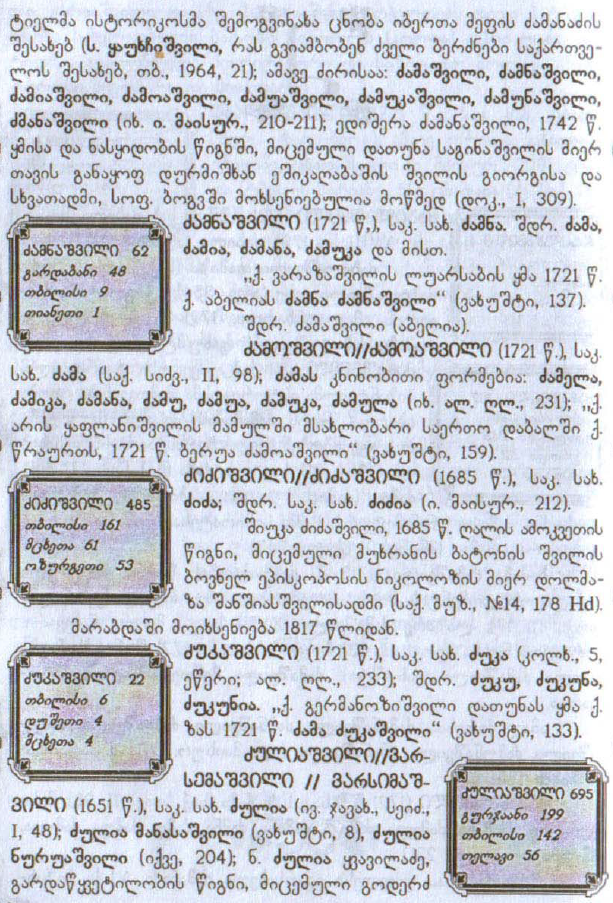 ტიელმა ისტორიკოსმა შემოგვინახა ცნობა იბერთა მეფის ძამანაძის
შესახებ (ს. ყაუხჩიშვილი, რას გვიამბობენ ძველი ბერძნები საქართვე-
ლოს შესახებ, თბ., 1964, 21); ამავე ძირისაა: ძამაშვილი, ძამნაშვილი,
ძამიაშვილი, ძამოაშვილი, ძამუაშვილი, ძამუკაშვილი, ძამუნაშვილი,
ძმანაშვილი (იხ. ი. მაისურ., 210-211); ედიშერა ძამანაშვილი, 1742 წ.
ყმისა და ნასყიდობის წიგნში, მიცემული დათუნა საგინაშვილის მიერ
თავის განაყოფ დურმიშხან ეშიკაღაბაშის შვილის გიორგისა და
სხვათადმი, სოფ. ბოგვში მოხსენიებულია მოწმედ (დოკ., I, 309).
ძამნაშვილი (1721 წ,), საკ. სახ. ძამნა. შდრ. ძამა,
ძამია, ძამანა, ძამუკა და მისთ.
„ქ. ვარაზაშვილის ლუარსაბის ყმა 1721 წ.
ქ. აბელიას ძამნა ძამნაშვილი“ (ვახუშტი, 137).
შდრ. ძამაშვილი (აბელია).
ძამნაშვილი 62
გარდაბანი 48
თბილისი 9
თიანეთი 1
ძამოშვილი//ძამოაშვილი (1721 წ.), საკ.
სახ. ძამა (საქ. სიძვ., II, 98); ძამას კნინობითი ფორმებია: ძამელა,
ძამიკა, ძამანა, ძამუ, ძამუა, ძამუკა, ძამულა (იხ. ალ. ღლ., 231); „ქ.
არის ყაფლანიშვილის მამულში მსახლობარი საერთო დაბალში ქ.
წრაურთს, 1721 წ. ბერუა ძამოაშვილი“ (ვახუშტი, 159).
ძიძიშვილი//ძიძაშვილი (1685 წ.), საკ. სახ.
ძიძა; შდრ. საკ. სახ. ძიძია (ი. მაისურ., 212).
შიუკა ძიძაშვილი, 1685 წ. ღალის ამოკვეთის
წიგნი, მიცემული მუხრანის ბატონის შვილის
ბოვნელ ეპისკოპოსის ნიკოლოზის მიერ დოლმა-
ზა შანშიასშვილისადმი (საქ. მუზ., №14, 178 Hd).
მარაბდაში მოიხსენიება 1817 წლიდან.
ძიძიშვილი 485
თბილისი 161
მცხეთა 61
ოზურგეთი 53
ძუკაშვილი (1721 წ.), საკ. სახ. ძუკა (კოლხ., 5,
ეწერი; ალ. ღლ., 233); შდრ. ძუკუ, ძუკუნა,
ძუკუნია. „ქ. გერმანოზიშვილი დათუნას ყმა ქ.
ზას 1721 წ. ძამა ძუკაშვილი“ (ვახუშტი, 133).
ძუკაშვილი 22
თბილისი 6
დუშეთი 4
მცხეთა 4
ძულიაშვილი//ვარ-
სემაშვილი // ვარსიმაშ-
ვილი (1651 წ.), საკ. სახ. ძულია (ივ. ჯავახ., სეიძ.,
I, 48); ძულია მანასაშვილი (ვახუშტი, 8), ძულია
ნურუაშვილი (იქვე, 204); ნ. ძულია ყვავილაძე,
გარდაწყვეტილობის წიგნი, მიცემული გოდერძ
ძულიაშვილი 695
გურჯაანი 199
თბილისი 142
თელავი 56